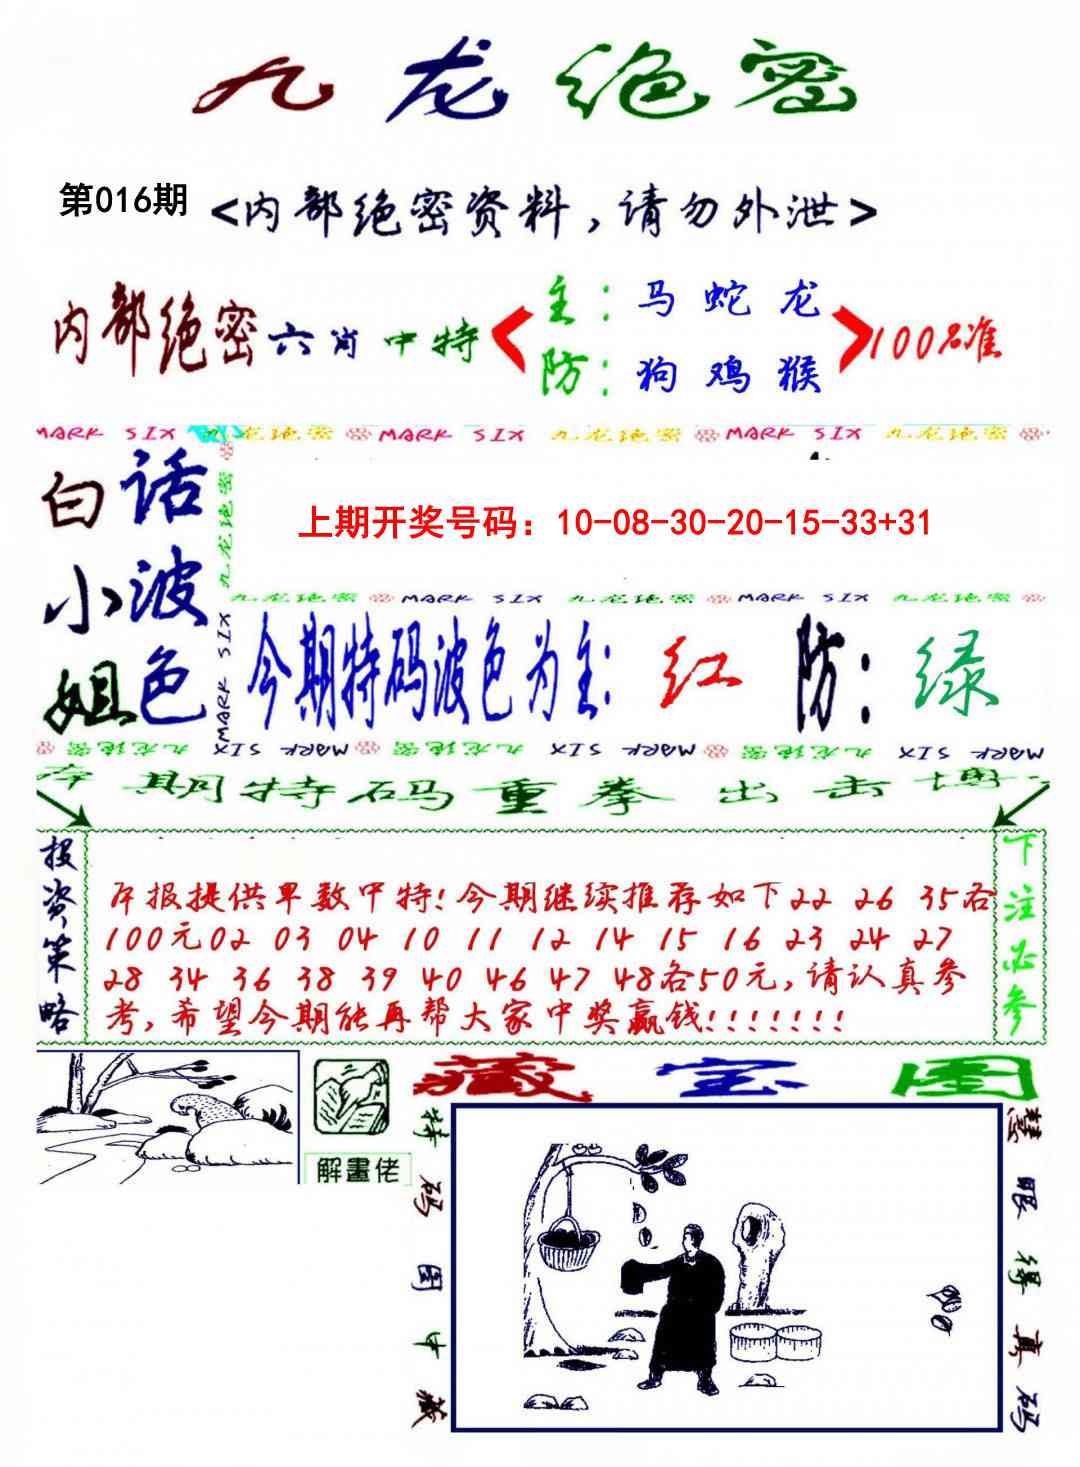 九龙绝密
第016期 <内部绝密资料,请勿外泄>
内部绝密六肖中特
主：马 蛇 龙
防：狗 鸡 猴
100%准
MARK SIX 九龙绝密 MARK SIX 九龙绝密 MARK SIX 九龙绝密
白话
小波
姐色
九龙绝密
MARK SIX
上期开奖号码：10-08-30-20-15-33+31
九龙绝密 MARK SIX 九龙绝密 MARK SIX 九龙绝密
今期特码波色为主: 红 防: 绿
九龙绝密 MARK SIX 九龙绝密 MARK SIX 九龙绝密 MARK SIX
本期特码重拳出击博
投资策略
本报提供单数中特!今期继续推荐如下22 26 35各
100元02 03 04 10 11 12 14 15 16 23 24 27
28 34 36 38 39 40 46 47 48各50元,请认真参
考,希望今期能再帮大家中奖赢钱!!!!!!!
下注必参
解畫佬
藏宝图
特码图中藏
慧眼得真码